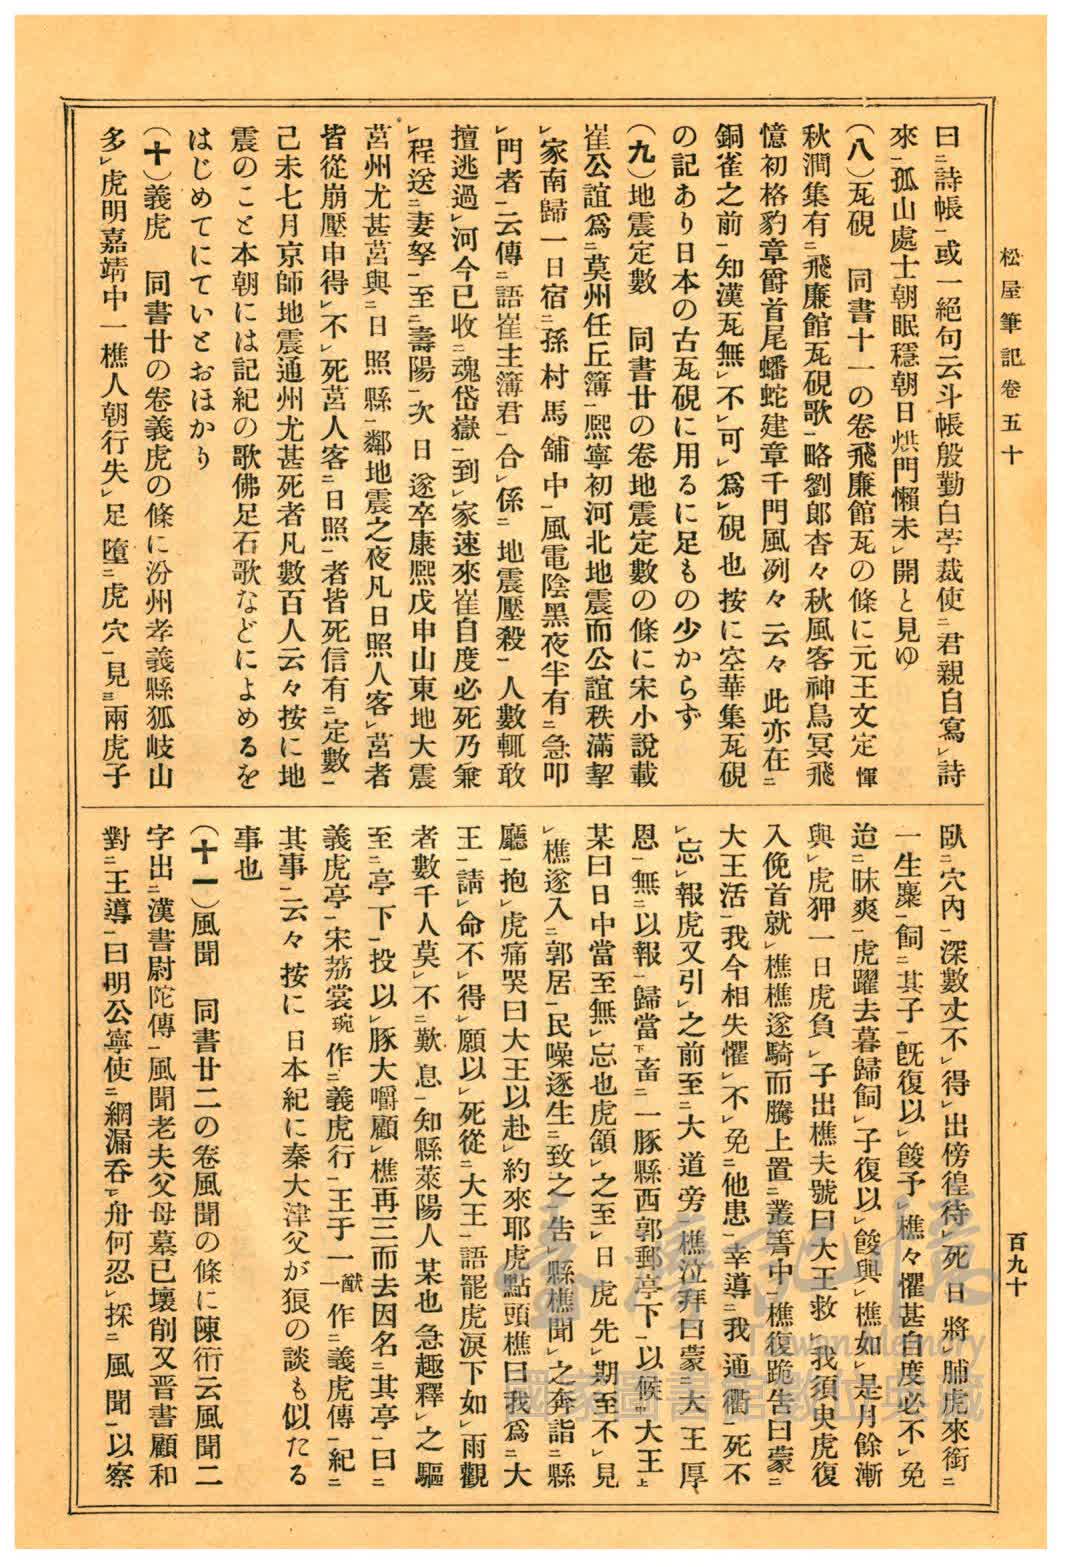 松屋筆記卷五十
百九十
曰㆓詩帳㆒或一絕句云斗帳殷勤白苧裁使㆓君親自寫㆑詩
來㆒孤山處士朝眠穩朝日烘門懶未㆑開と見ゆ
(八)瓦硯 同書十一の卷飛廉館瓦の條に元王文定惲
秋澗集有㆓飛廉館瓦硯歌㆒略劉郎杳々秋風客神鳥冥飛
憶初格豹章爵首尾蟠蛇建章千門風冽々云々此亦在㆓
銅雀之前㆒知漢瓦無㆑不㆑可㆑爲㆑硯也按に空華集瓦硯
の記あり日本の古瓦硯に用るに足もの少からず
(九)地震定數 同書廿の卷地震定數の條に宋小說載
崔公誼爲㆓莫州任丘簿㆒熙寧初河北地震而公誼秩滿挈
㆑家南歸一日宿㆓孫村馬舖中㆒風電陰黑夜半有㆓急叩
㆑門者㆒云傳㆓語崔主簿君㆒合㆑係㆓地震壓殺㆒人數輒敢
擅逃過㆑河今已收㆓魂岱嶽㆒到㆑家速來崔自度必死乃兼
㆑程送㆓妻孥㆒至㆓壽陽㆒次日遂卒康熙戊申山東地大震
莒州尤甚莒與㆓日照縣㆒鄰地震之夜凡日照人客㆑莒者
皆從崩壓中得㆑不㆑死莒人客㆓日照㆒者皆死信有㆓定數㆒
己未七月京師地震通州尤甚死者凡數百人云々按に地
震のこと本朝には記紀の歌佛足石歌などによめるを
はじめてにていとおほかり
(十)義虎 同書廿の卷義虎の條に汾州孝義縣狐岐山
多㆑虎明嘉靖中一樵人朝行失㆑足墮㆓虎穴㆒見㆘兩虎子
臥㆓穴內㆒深數丈不㆑得㆑出傍徨待㆑死日將㆑晡虎來銜㆓
一生麋㆒飼㆓其子㆒旣復以㆑餕予㆑樵々懼甚自度必不㆑免
迨㆓昧爽㆒虎躍去暮歸飼㆑子復以㆑餕與㆑樵如㆑是月餘漸
與㆑虎狎一日虎負㆑子出樵夫號曰大王救㆑我須臾虎復
入俛首就㆑樵樵遂騎而騰上置㆓叢箐中㆒樵復跪吿曰蒙㆓
大王活㆒我今相失懼㆑不㆑免㆓他患㆒幸導㆓我通衢㆒死不
㆑忘㆑報虎又引㆑之前至㆓大道旁㆒樵泣拜曰蒙㆓大王厚
恩㆒無㆓以報㆒歸當㆘畜㆓一豚縣西郭郵亭下㆒以候㆓大王㆖
某曰日中當至無㆑忘也虎頷㆑之至㆑日虎先㆑期至不㆑見
㆑樵遂入㆓郭居㆒民噪逐生㆓致之㆒吿㆑縣樵聞㆑之奔詣㆓縣
廳㆒抱㆑虎痛哭曰大王以赴㆑約來耶虎點頭樵曰我爲㆓大
王㆒請㆑命不㆑得㆑願以㆑死從㆓大王㆒語罷虎淚下如㆑雨觀
者數千人莫㆑不㆓歎息㆒知縣萊陽人某也急趣釋㆑之驅
至㆓亭下㆒投以㆑豚大嚼顧㆑樵再三而去因名㆓其亭㆒曰㆓
義虎亭㆒宋荔裳琬作㆓義虎行㆒王于一猷一作㆓義虎傳㆒紀㆓
其事㆒云々按に日本紀に秦大津父が狼の談も似たる
事也
(十一)風聞 同書廿二の卷風聞の條に陳衎云風聞二
字出㆓漢書尉陀傳㆒風聞老夫父母墓已壞削又晉書顧和
對㆓王導㆒曰明公寧使㆓網漏吞㆑舟何忍㆑採㆓風聞㆒以察
臺灣記憶
Taiwan Memory
國家圖書館數位典藏